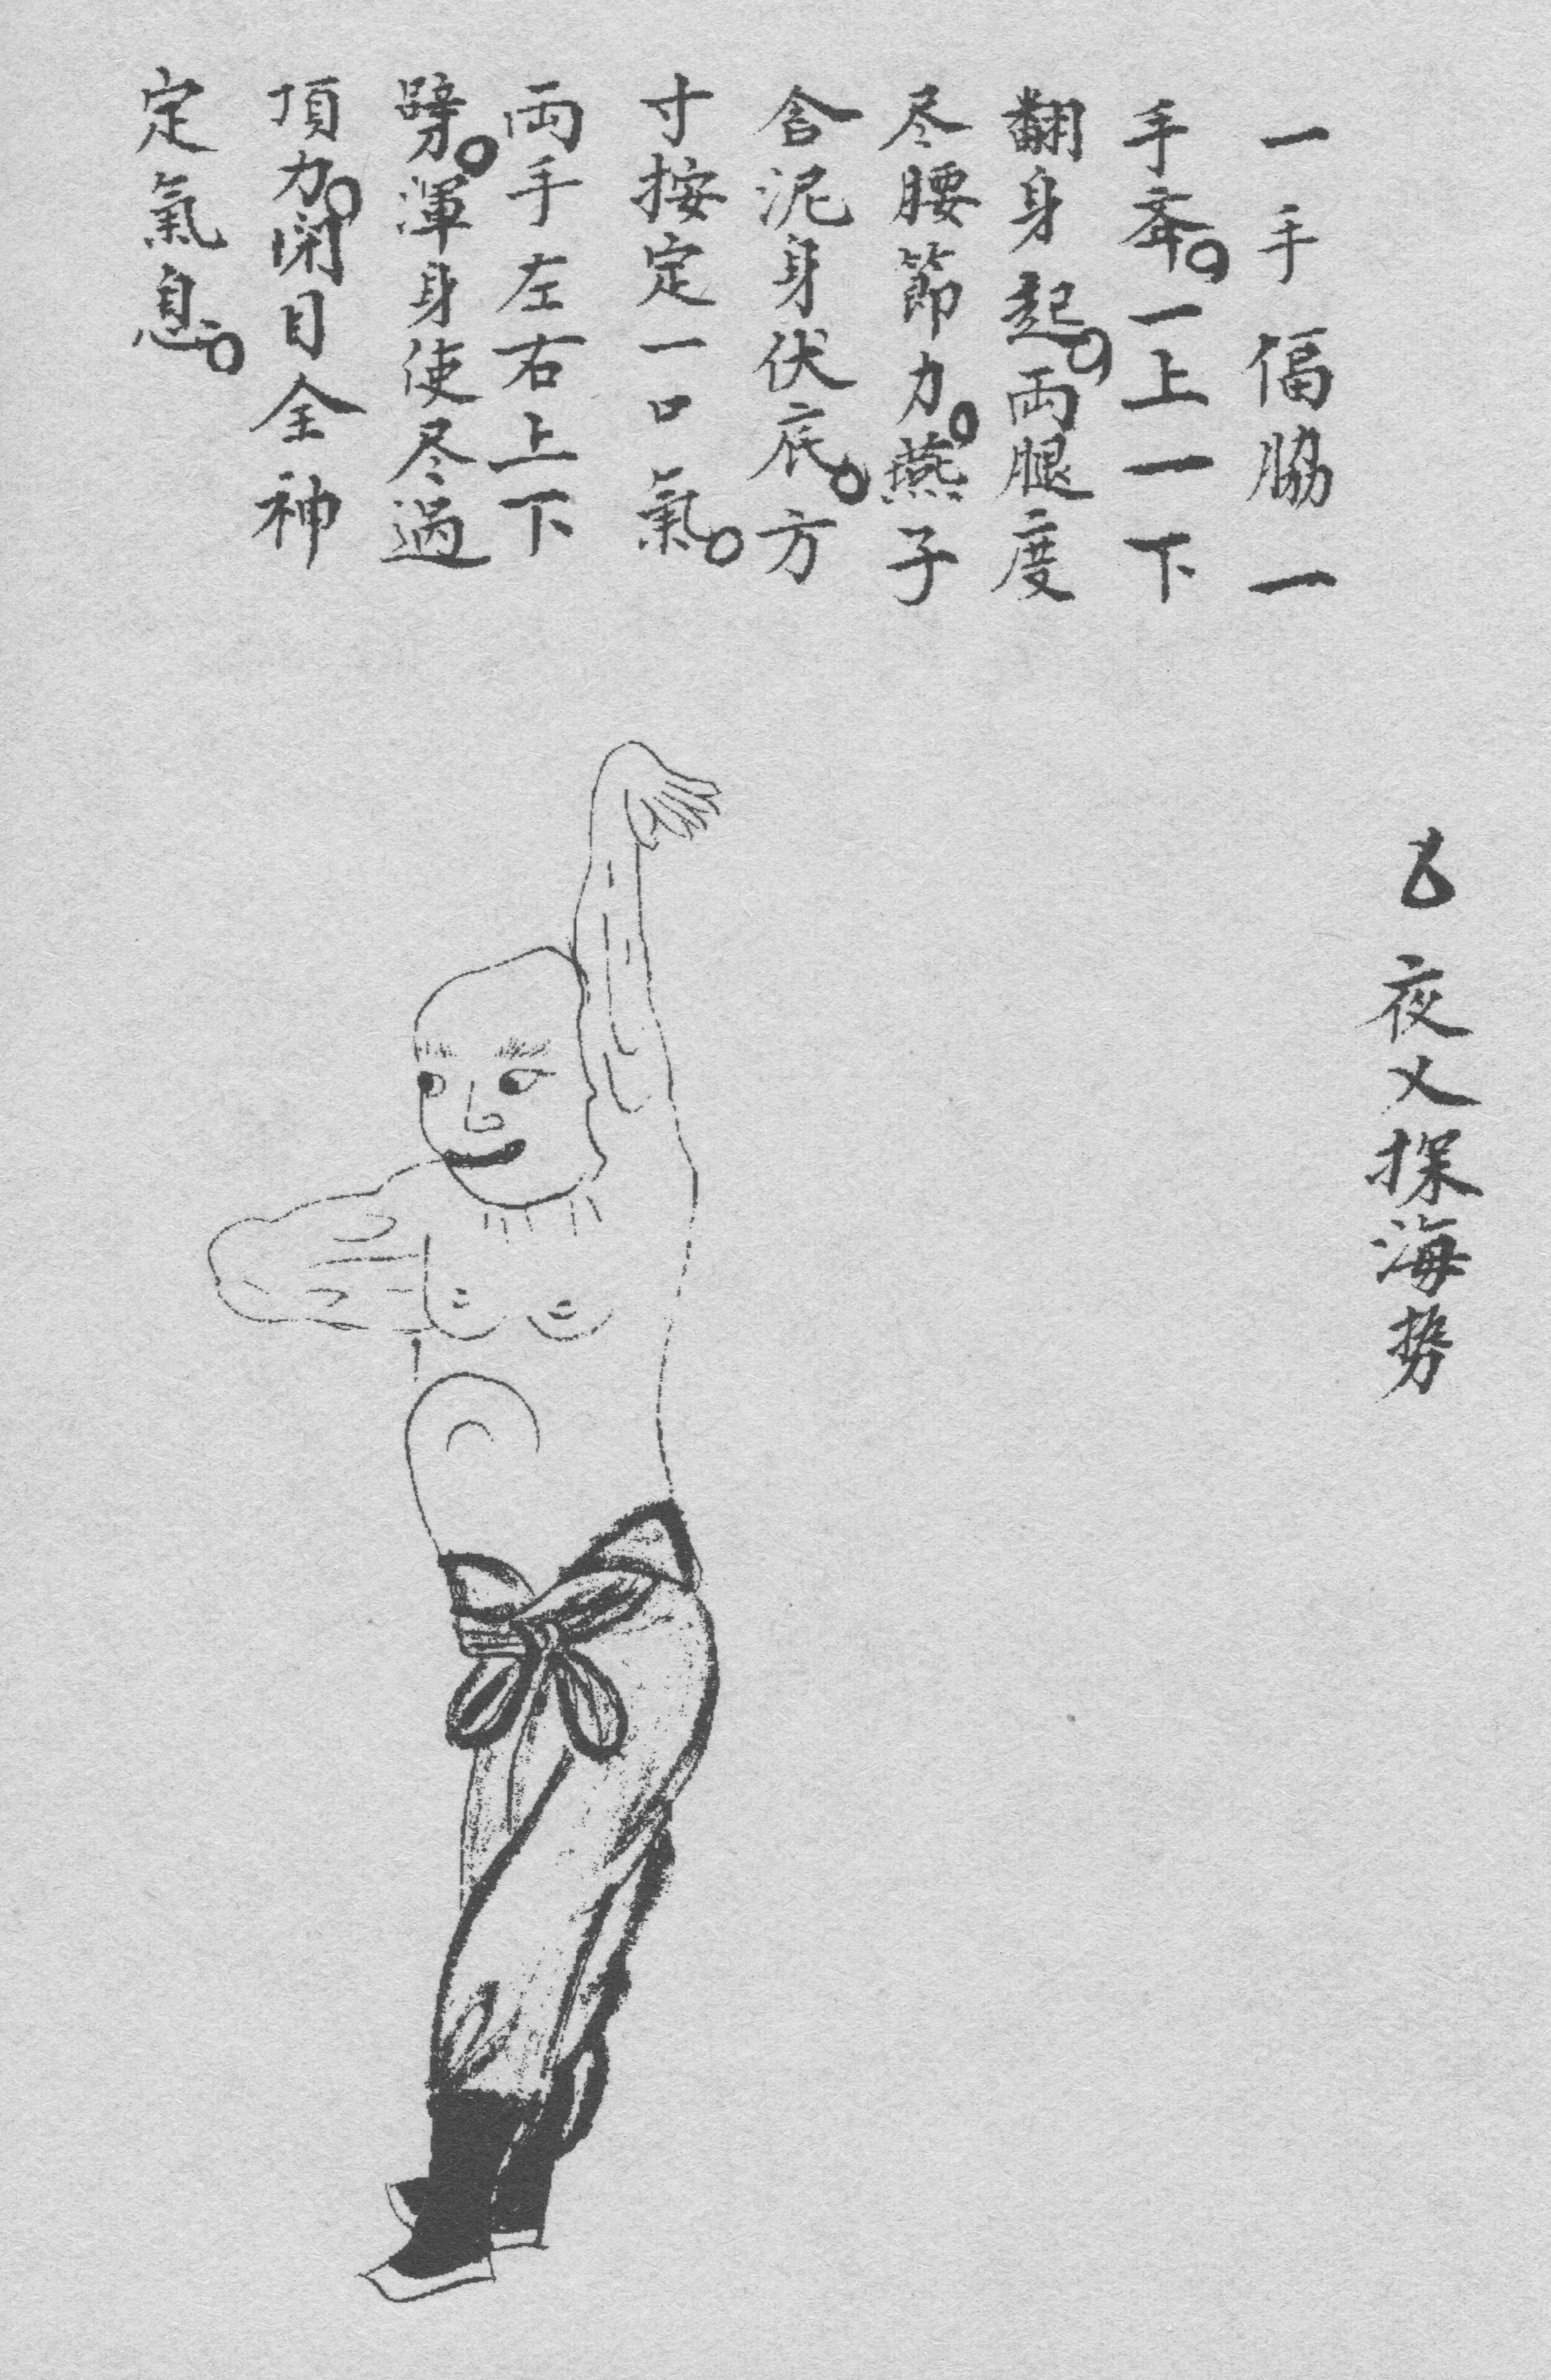 夜乂探海势
一手偪脇一
手。一上一下
翻身起。両腿度
尽腰節力。燕子
含泥身伏底。方
寸按定一口氣。
両手左右上下
劈。渾身使尽過
頂力。閉目全神
定氣息。